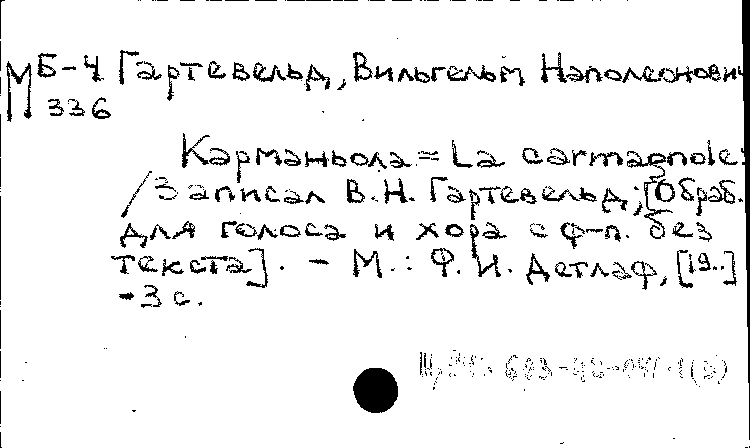 М Б-4 Гартевельд, Вильгельм Наполеонович
336
Карманьола = La carmagnole:
/Записал В.Н. Гартевельд; [Обраб.
для голоса и хора с ф-п. без
текста]. - М.: Ф. И. Детлаф, [19..]
-3 с.